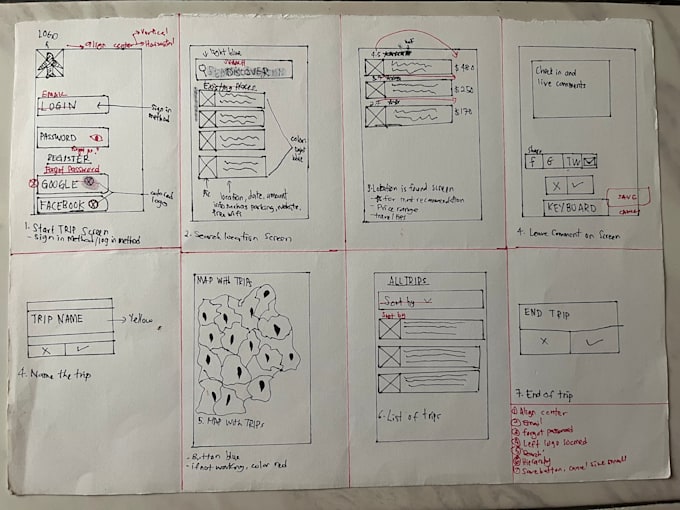 LOGO
align center
Vertical
Horizontal
EMAIL
LOGIN
Sign in
method
PASSWORD
REGISTER
Forgot Password
GOOGLE
FACEBOOK
colored
logos
1. Start TRIP Screen
- Sign in Method/log in method
Light blue
SEARCH
Existing Places
color:
light
blue
Pic
location, date, amount
info such as parking, website,
free wifi
2. Search location Screen
4.5
$480
$250
$170
3. Location is found screen
- for not recommendation
- Price range
- travel tips
Check in and
live comments
Share
f
G
TW
X
KEYBOARD
SAVE
CANCEL
4. Leave Comment on Screen
TRIP NAME
Yellow
X
4. Name the trip
MAP WITH TRIPS
5. MAP WITH TRIPS
- Button blue
- if not working, color red
ALL TRIPS
Sort by
Sort by
6. List of trips
END TRIP
X
7. End of trip
1 Align center
2 Email
3 forgot password
4 Left logo
5 Search
6 Hierarchy
7 Save button, cancel